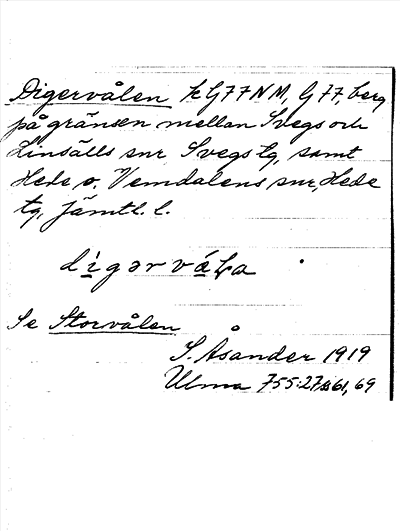 Digervålen k G77NM, G 77, berg
på gränsen mellan Svegs och
Linsälls snr, Svegs tg, samt
Hede o. Vemdalens snr, Hede
tg, Jämtl. l.
digərvåɫa
Se Storvålen
S. Åsander 1919
Ulma 755:27 s 61, 69